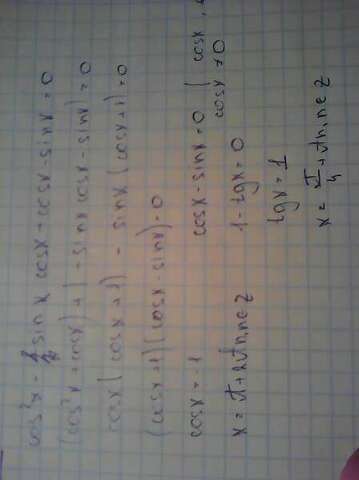 cos²x - sinx cosx + cosx - sinx = 0
(cos²x + cosx) + (-sinx cosx - sinx) = 0
cosx (cosx + 1) - sinx (cosx + 1) = 0
(cosx + 1) (cosx - sinx) = 0
cosx = -1 cosx - sinx = 0 | cosx,
cosx ≠ 0
x = π + 2πn, n∈Z 1 - tgx = 0
tgx = 1
x = π/4 + πn, n∈Z